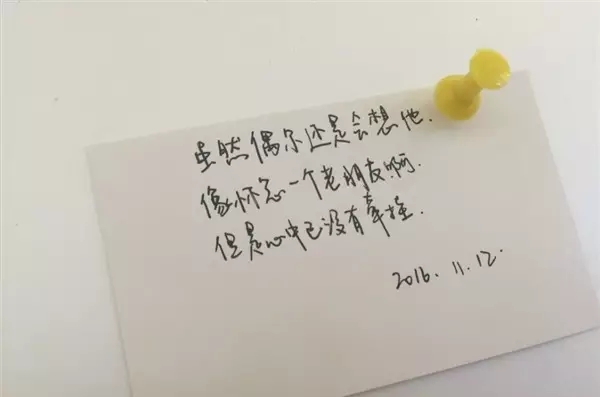 虽然偶尔还是会想他.
像怀念一个老朋友啊.
但是心中已没有牵挂.
2016.11.12.